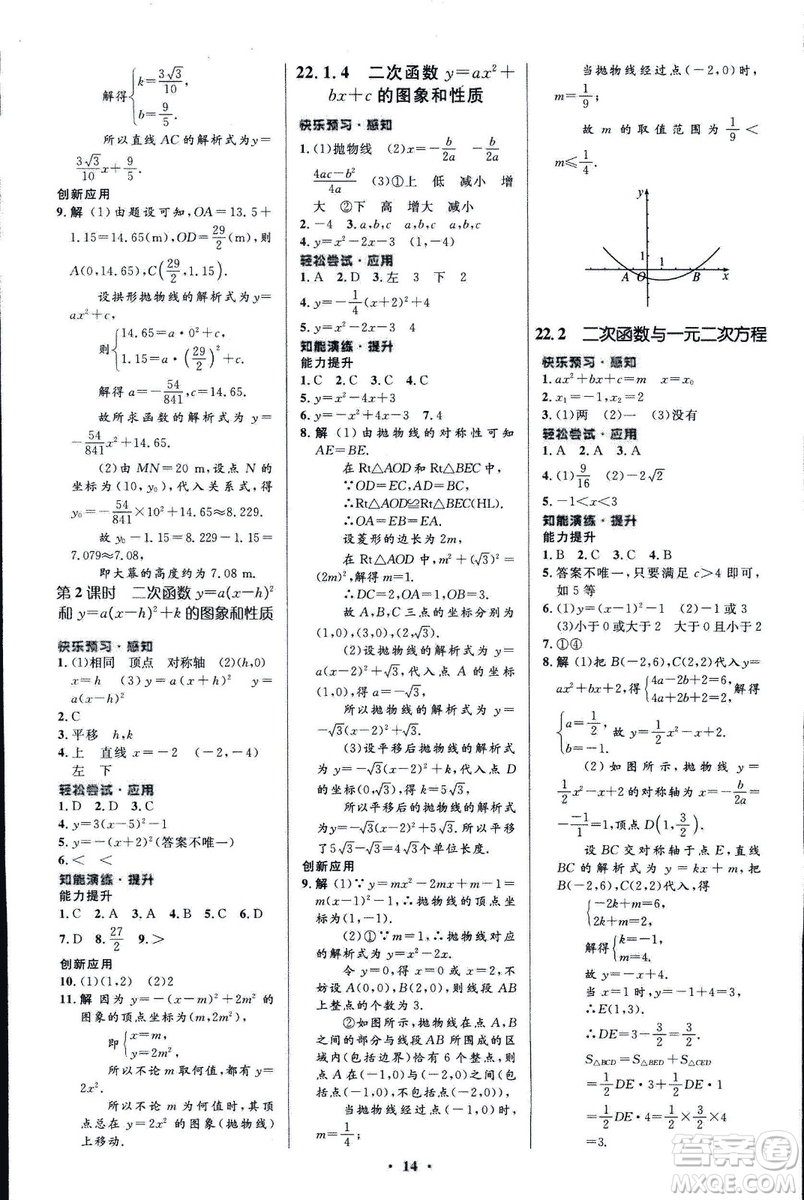 解得{k=3√3/10
b=9/5.
所以直线 AC 的解析式为 y=
3√3/10 x+9/5.
创新应用
9.解 (1)由题设可知,OA=13.5+
1.15=14.65(m),OD=29/2(m),则
A(0,14.65),C(29/2,1.15).
设拱形抛物线的解析式为 y=
ax²+c,
则{14.65=a·0²+c,
1.15=a·(29/2)²+c,
解得 a=-54/841,c=14.65.
故所求函数的解析式为 y=
-54/841 x²+14.65.
(2)由 MN=20 m,设点 N 的
坐标为(10,y₀),代入关系式,得
y₀=-54/841×10²+14.65≈8.229.
故 y₀-1.15=8.229-1.15=
7.079≈7.08.
即大幕的高度约为 7.08 m.
第2课时 二次函数 y=a(x-h)²
和 y=a(x-h)²+k 的图象和性质
快乐预习·感知
1.(1)相同 顶点 对称轴 (2)(h,0)
x=h (3)y=a(x+h)² y=
a(x-h)²
2.C
3.平移 h,k
4.上 直线 x=-2 (-2,-4)
左 下
轻松尝试·应用
1.D 2.D 3.C
4.y=3(x-5)²-1
5.y=-(x+2)²(答案不唯一)
6.< <
知能演练·提升
能力提升
1.C 2.C 3.B 4.B 5.C 6.B
7.D 8.27/2 9.>
创新应用
10.(1)(1,2) (2)2
11.解 因为 y=-(x-m)²+2m² 的
图象的顶点坐标为(m,2m²),
即{x=m,
y=2m²,
所以 y=2x².
所以不论 m 取何值,都有
y=2x²,所以不论 m 为何值时,其顶
点总在 y=2x² 的图象(抛物线)
上移动.
22.1.4 二次函数 y=ax²+
bx+c 的图象和性质
快乐预习·感知
1.(1)抛物线 (2)x=-b/2a -b/2a
4ac-b²/4a (3)①上 低 减小 增
大 ②下 高 增大 减小
2.-4 3.a,b,c a,b,c a,b,c
4.y=x²-2x-3 (1,-4)
轻松尝试·应用
1.A 2.D 3.左 3 下 2
4.y=-1/4(x+2)²+4
知能演练·提升
能力提升
1.C 2.C 3.B 4.B
5.y=x²-4x+3
6.y=-x²+2x+3 7.4
8.解 (1)由抛物线的对称性可知
AE=BE.
在 Rt△AOD 和 Rt△BEC 中,
∵OD=EC,AD=BC,
∴Rt△AOD≌Rt△BEC(HL).
∴OA=EB=EA.
设菱形的边长为 2m,
在 Rt△AOD 中,m²+(√3)²=
(2m)²,解得 m=1(负值舍去).
∴DC=2,OA=1,OB=3.
故 A,B,C 三点的坐标分别为
(1,0),(3,0),(2,√3).
(2)设抛物线的解析式为 y=
a(x-2)²+√3,代入点 A 的坐标
(1,0),得 a=-√3.
所以抛物线的解析式为 y=
-√3(x-2)²+√3.
(3)设平移后的抛物线的解析式
为 y=-√3(x-2)²+k,代入点 D
的坐标(0,√3),得 k=5√3.
所以平移后的抛物线的解析式
为 y=-√3(x-2)²+5√3.所以平移了
5√3-√3=4√3个单位长度.
创新应用
9.解 (1)∵y=mx²-2mx+m-1=
m(x-1)²-1,∴抛物线的顶点坐
标为(1,-1).
(2)①∵m=1,∴抛物线对应的
函数解析式为 y=x²-2x.
令 y=0,得 x=0 或 x=2,不
妨设 A(0,0),B(2,0),∴线段 AB
上的整点的个数为 3.
②如图所示,抛物线在点 A,B
之间的部分与线段 AB 所围成的区
域内(包括边界)恰有 6 个整点,则
点 A 在(-1,0)与(-2,0)之间
(包括(-1,0),不包括(-2,0)).
当抛物线经过点(-1,0)时,
m=1/4;
当抛物线经过点(-2,0)时,
m=1/9;
故 m 的取值范围为 1/9<
m≤1/4.
y
1
A O 1 B x
22.2 二次函数与一元二次方程
快乐预习·感知
1.ax²+bx+c=m x=x₀
2.x₁=-1,x₂=2
3.(1)两 (2)一 (3)没有
轻松尝试·应用
1.A 2.A 3.C
4.(1)9/16 (2)-2√2
5.-1<x<3
知能演练·提升
能力提升
1.B 2.C 3.C 4.B
5.答案不唯一,只要满足 c>4 即可,
如 5 等
6.(1)x=-2 或 x=4 (2)-2 4
(3)小于 0 或大于 2 大于 0 小于 2
7.①④
8.解 (1)把 B(-2,6),C(2,2)代入 y=
ax²+bx+2,得{4a-2b+2=6,
4a+2b+2=2,解得
{a=1/2,
b=-1. 故 y=1/2x²-x+2.
(2)如图所示,由 y=
1/2x²-x+2 得对称轴为 x=-b/2a=
-(-1)/1=1,顶点 D(1,3/2).
设 BC 交对称轴于点 E,直线
BC 的解析式为 y=kx+m,代入
B(-2,6),C(2,2),得
{-2k+m=6,
2k+m=2,
解得{k=-1,
m=4.
故 y=-x+4.
当 x=1 时,y=-1+4=3;
∴DE=3-3/2=3/2.
S△BDC=S△BED+S△CED
=1/2DE·3+1/2DE·
1=1/2×3/2×3+1/2×3/2
=3.
·14·
答案圈
MXQE.COM